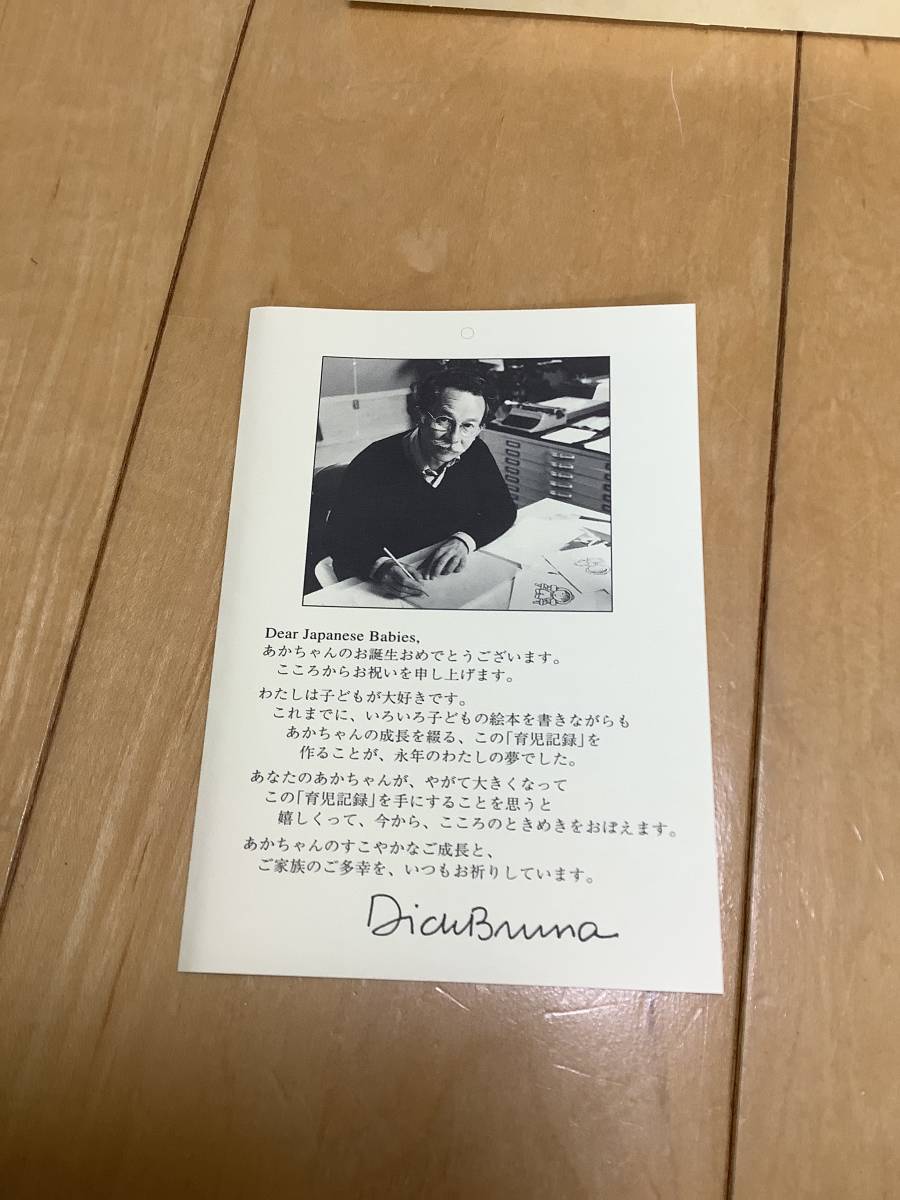 Dear Japanese Babies,
あかちゃんのお誕生おめでとうございます。
こころからお祝いを申し上げます。
わたしは子どもが大好きです。
これまでに、いろいろ子どもの絵本を書きながらも
あかちゃんの成長を綴る、この「育児記録」を
作ることが、永年のわたしの夢でした。
あなたのあかちゃんが、やがて大きくなって
この「育児記録」を手にすることを思うと
嬉しくって、今から、こころのときめきをおぼえます。
あかちゃんのすこやかなご成長と、
ご家族のご多幸を、いつもお祈りしています。
Dick Bruna